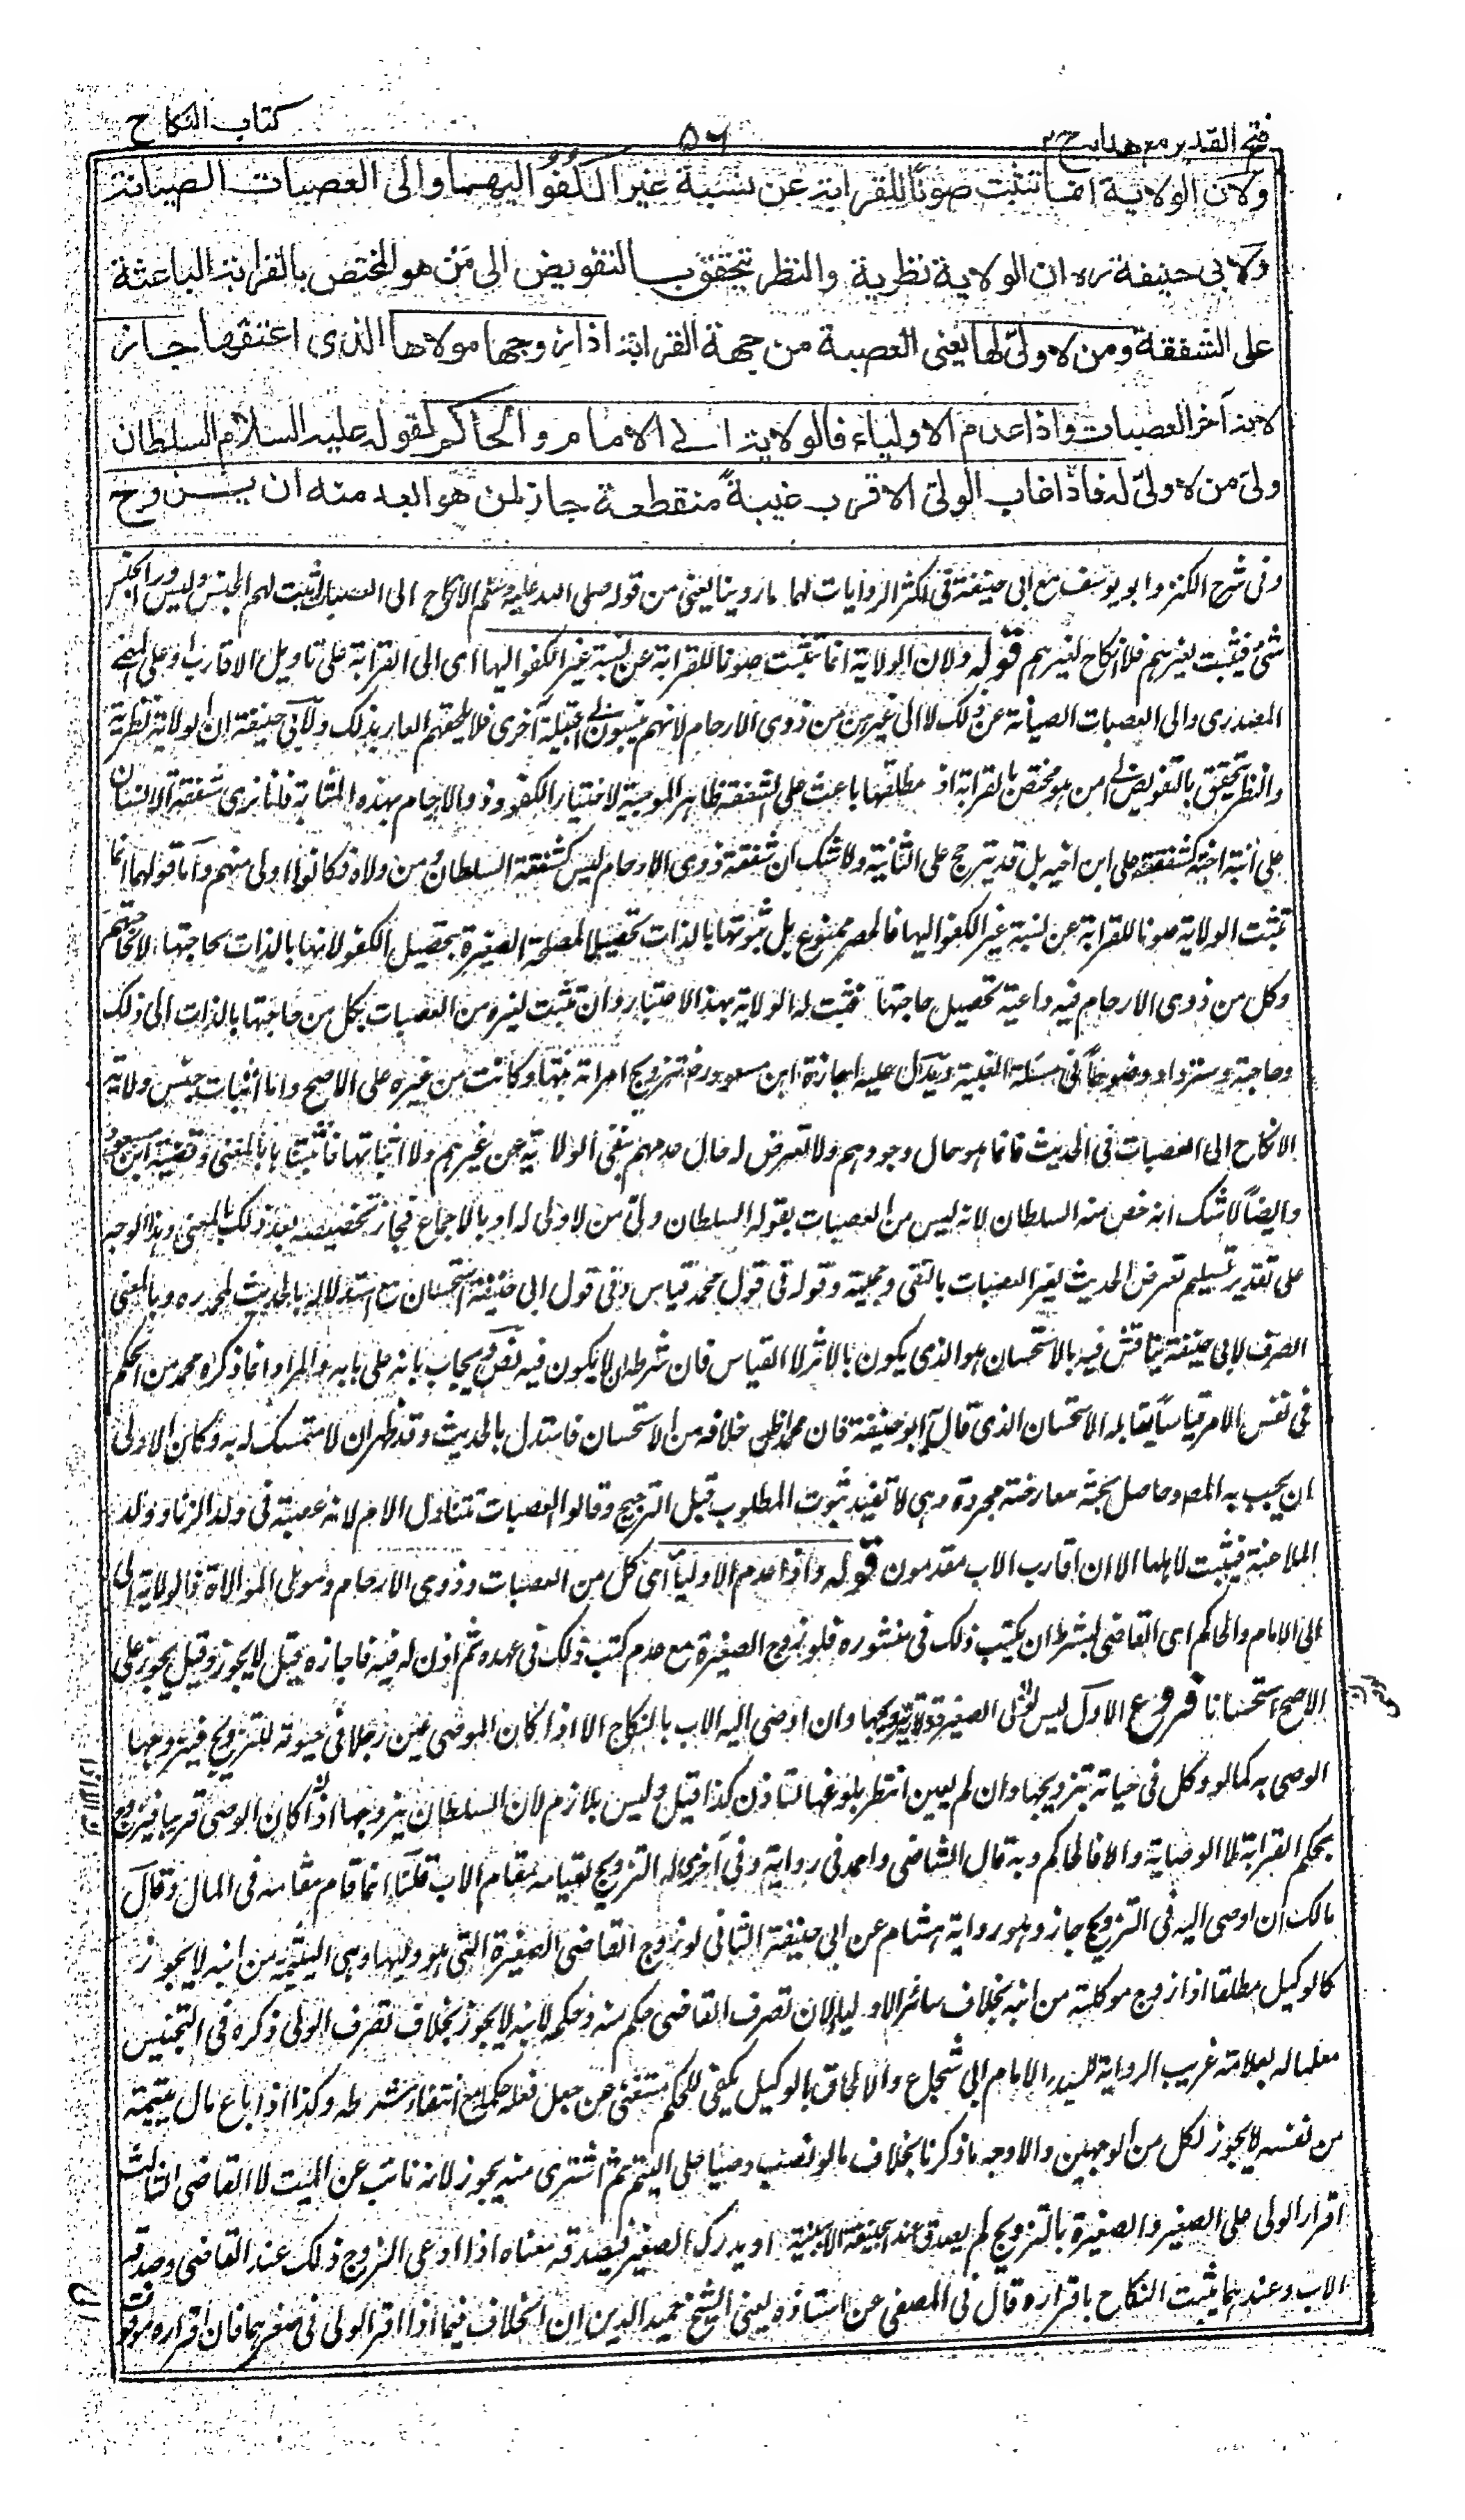 فتح القدير مع هدايه ج ٢
٥٦
كتاب النكاح
ولان الولاية انما تثبت صونًا للقرابة عن نسبة غير الكفؤ اليهما والى العصبات الصيانة
ولابى حنيفة ره ان الولاية نظرية والنظر يتحقق بالتفويض الى من هو المختص بالقرابة الباعثة
على الشفقة ومن لا ولىّ لها يعنى العصبة من جهة القرابة اذا زوجها مولاها الذى اعتقها جاز
لانه آخر العصبات واذا عدم الاولياء فالولاية الى الامام والحاكم لقوله عليه السلام السلطان
ولىّ من لا ولىّ له فاذا غاب الولى الاقرب غيبةً منقطعة جاز لمن هو ابعد منه ان يزوج
وفى شرح الكنز وابو يوسف مع ابى حنيفة فى اكثر الروايات لهما ما روينا يعنى من قوله صلى الله عليه وسلم الانكاح الى العصبات اثبت لهم الجنس وليس وراء الجنس
شئ فيثبت لغيرهم فلا انكاح لغيرهم قوله ولان الولاية انما تثبت صونا للقرابة عن نسبة غير الكفو اليها اى الى القرابة على تاويل الاقارب او على المعنى
المصدرى والى العصبات الصيانة عن ذلك لا الى غيرهن من ذوى الارحام لانهم ينسبون الى قبيلة اخرى فلا يلحقهم العار بذلك ولابى حنيفة ان الولاية نظرية
والنظر يتحقق بالتفويض الى من هو مختص بالقرابة اذ مطلقها باعث على الشفقة ظاهر الموجبة لاختيار الكفو وذوو الارحام بهذه المثابة فانا نرى شفقة الانسان
على ابنة اخته كشفقته على ابن اخيه بل قد يترجح على الثانية ولا شك ان شفقة ذوى الارحام ليس كشفقة السلطان ومن ولاه فكانوا اولى منهم واما قولهما انما
تثبت الولاية صونا للقرابة عن نسبة غير الكفو اليها فالحصر ممنوع بل ثبوتها بالذات تحصيلا لمصلحة الصغيرة بتحصيل الكفو لانها بالذات لحاجتها لا لحاجتهم
وكل من ذوى الارحام فيه داعية تحصيل حاجتها فتثبت له الولاية بهذا الاعتبار وان تثبت لغيره من العصبات بكل من حاجتها بالذات الى ذلك
وحاجته وستزداد وضوحاً فى مسئلة الغيبة ويدل عليه اجازة ابن مسعود رض تزويج امراته بنتها وكانت من غيره على الاصح واما اثبات جنس ولاية
الانكاح الى العصبات فى الحديث فانما هو حال وجودهم ولا تعرض له حال عدمهم بنفى الولاية عن غيرهم ولا اثباتها فاثبتناها بالمعنى وقصة ابن مسعود
وايضاً لا شك انه خص منه السلطان لانه ليس من العصبات بقوله السلطان ولىّ من لا ولى له او بالاجماع فجاز تخصيصه بعد ذلك بالمعنى وهذا الوجه
على تقدير تسليم تعرض الحديث لغير العصبات بالنفى وحجيته وقوله فى قول محمد قياس وفى قول ابى حنيفة استحسان مع استدلاله بالحديث لمحمد ره وبالمعنى
الصرف لابى حنيفة يناقش فيه بالاستحسان هو الذى يكون بالاثر لا القياس فان شرطه ان لا يكون فيه نص ويجاب بانه على بابه والمراد انما ذكره محمد من الحكم
فى نفس الامر قياساً يقابله الاستحسان الذى قال به ابو حنيفة فان محمدا ظن خلافه من الاستحسان فاستدل بالحديث وقد ظهر ان لا متمسك له به وكان الاولى
ان يجيب به المص وحاصل بحثه معارضة مجردة وهى لا تفيد ثبوت المطلوب قبل الترجيح وقالوا العصبات تتناول الام لانه عصبة فى ولد الزنا وولد
الملاعنة فيثبت لاهلها الا ان اقارب الاب مقدمون قوله واذا عدم الاولياء اى كل من العصبات وذوى الارحام ومولى الموالاة فالولاية الى
الى الامام والحاكم اى القاضى بشرط ان يكتب ذلك فى منشوره فلو زوج الصغيرة مع عدم كتب ذلك فى عهده ثم اذن له فيه فاجازه قيل لا يجوز وقيل يجوز على
الاصح استحسانا فروع الاول ليس لوصى الصغيرة ولاية تزويجها وان اوصى اليه الاب بالنكاح الا اذا كان الموصى عين رجلا فى حيوته للتزويج فيزوجها
الوصى به كما لو وكل فى حياته بتزويجها وان لم يعين انتظر بلوغها لتاذن كذا قيل وليس بلازم لان السلطان يزوجها اذا كان الوصى قريبا فيزوج
بحكم القرابة لا الوصاية والا فالحاكم وبه قال الشافعى واحمد فى رواية وفى اخرى له التزويج لقيامه مقام الاب قلنا انما قام مقامه فى المال وقال
مالك ان اوصى اليه فى التزويج جاز وهو رواية هشام عن ابى حنيفة الثانى لو زوج القاضى الصغيرة التى هو وليها وهى اليتيمة من ابنه لا يجوز
كالوكيل مطلقا اذا زوج موكلته من ابنه بخلاف سائر الاولياء لان تصرف القاضى حكم منه وحكمه لابنه لا يجوز بخلاف تصرف الولى ذكره فى التجنيس
معلما له بعلامة غريب الرواية للسيد الامام ابى شجاع والالحاق بالوكيل يكفى للحكم مستغنى عن جعل فعله حكما مع انتفاء شرطه وكذا اذا باع مال يتيمه
من نفسه لا يجوز لكل من الوجهين والاوجه ما ذكرنا بخلاف ما لو نصب وصيا على اليتيم ثم اشترى منه يجوز لانه نائب عن الميت لا القاضى الثالث
اقرار الولى على الصغير والصغيرة بالتزويج لم يصدق عند ابى حنيفة الا ببينة او يدرك الصغير فيصدقه معناه اذا ادعى الزوج ذلك عند القاضى وصدقه
الاب وعندهما يثبت النكاح باقراره قال فى المصفى عن استاذه يعنى الشيخ حميد الدين ان الخلاف فيما اذا اقر الولى فى صغرهما فان اقراره موقوف